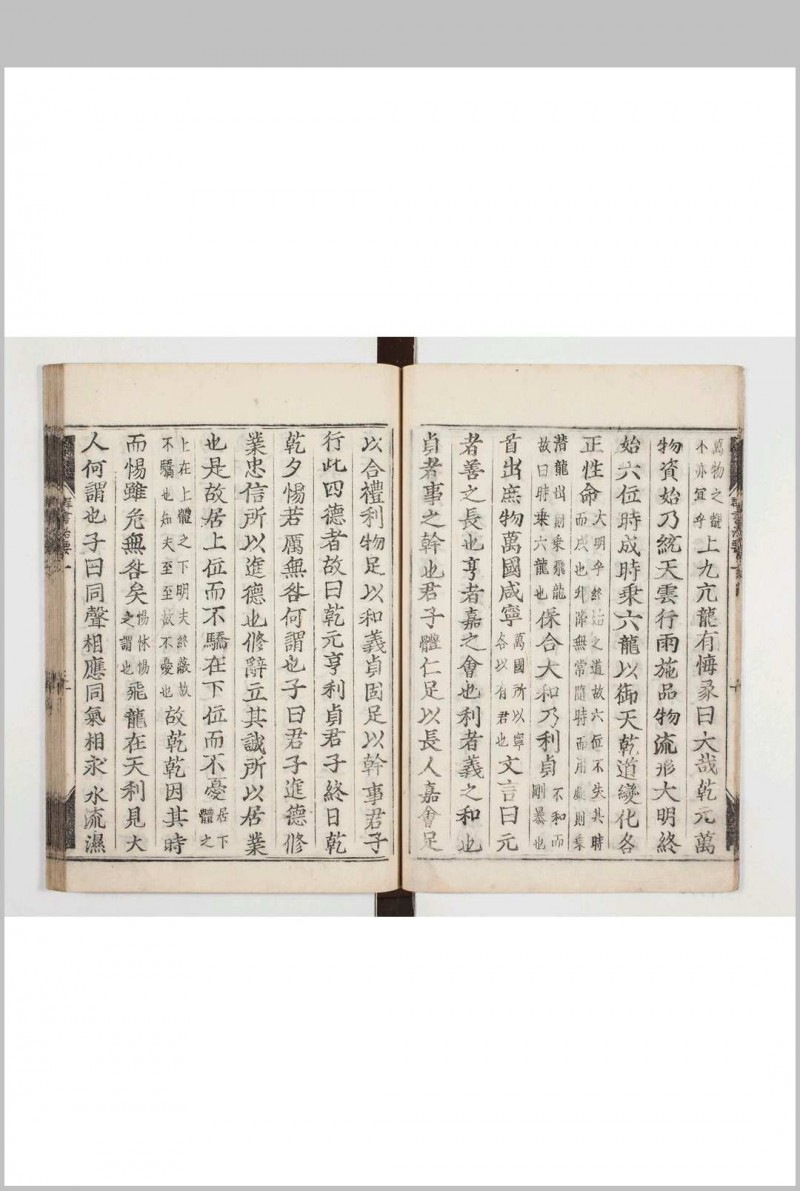 萬物之覩不亦宜乎上九亢龍有悔彖曰大哉乾元萬
物資始乃統天雲行雨施品物流形大明終
始六位時成時乘六龍以御天乾道變化各
正性命大明乎終始之道故六位不失其時而成也升降無常隨時而用處則乘
潛龍出則乘飛龍故曰時乘六龍也保合大和乃利貞不和而剛暴也
首出庶物萬國咸寧萬國所以寧各以有君也文言曰元
者善之長也亨者嘉之會也利者義之和也
貞者事之幹也君子體仁足以長人嘉會足
以合禮利物足以和義貞固足以幹事君子
行此四德者故曰乾元亨利貞君子終日乾
乾夕惕若厲無咎何謂也子曰君子進德修
業忠信所以進德也修辭立其誠所以居業
也是故居上位而不驕在下位而不憂居下體之
上在上體之下明夫終敝故不驕也知夫至至故不憂也故乾乾因其時
而惕雖危無咎矣惕怵惕之謂也飛龍在天利見大
人何謂也子曰同聲相應同氣相求水流濕
群書治要一